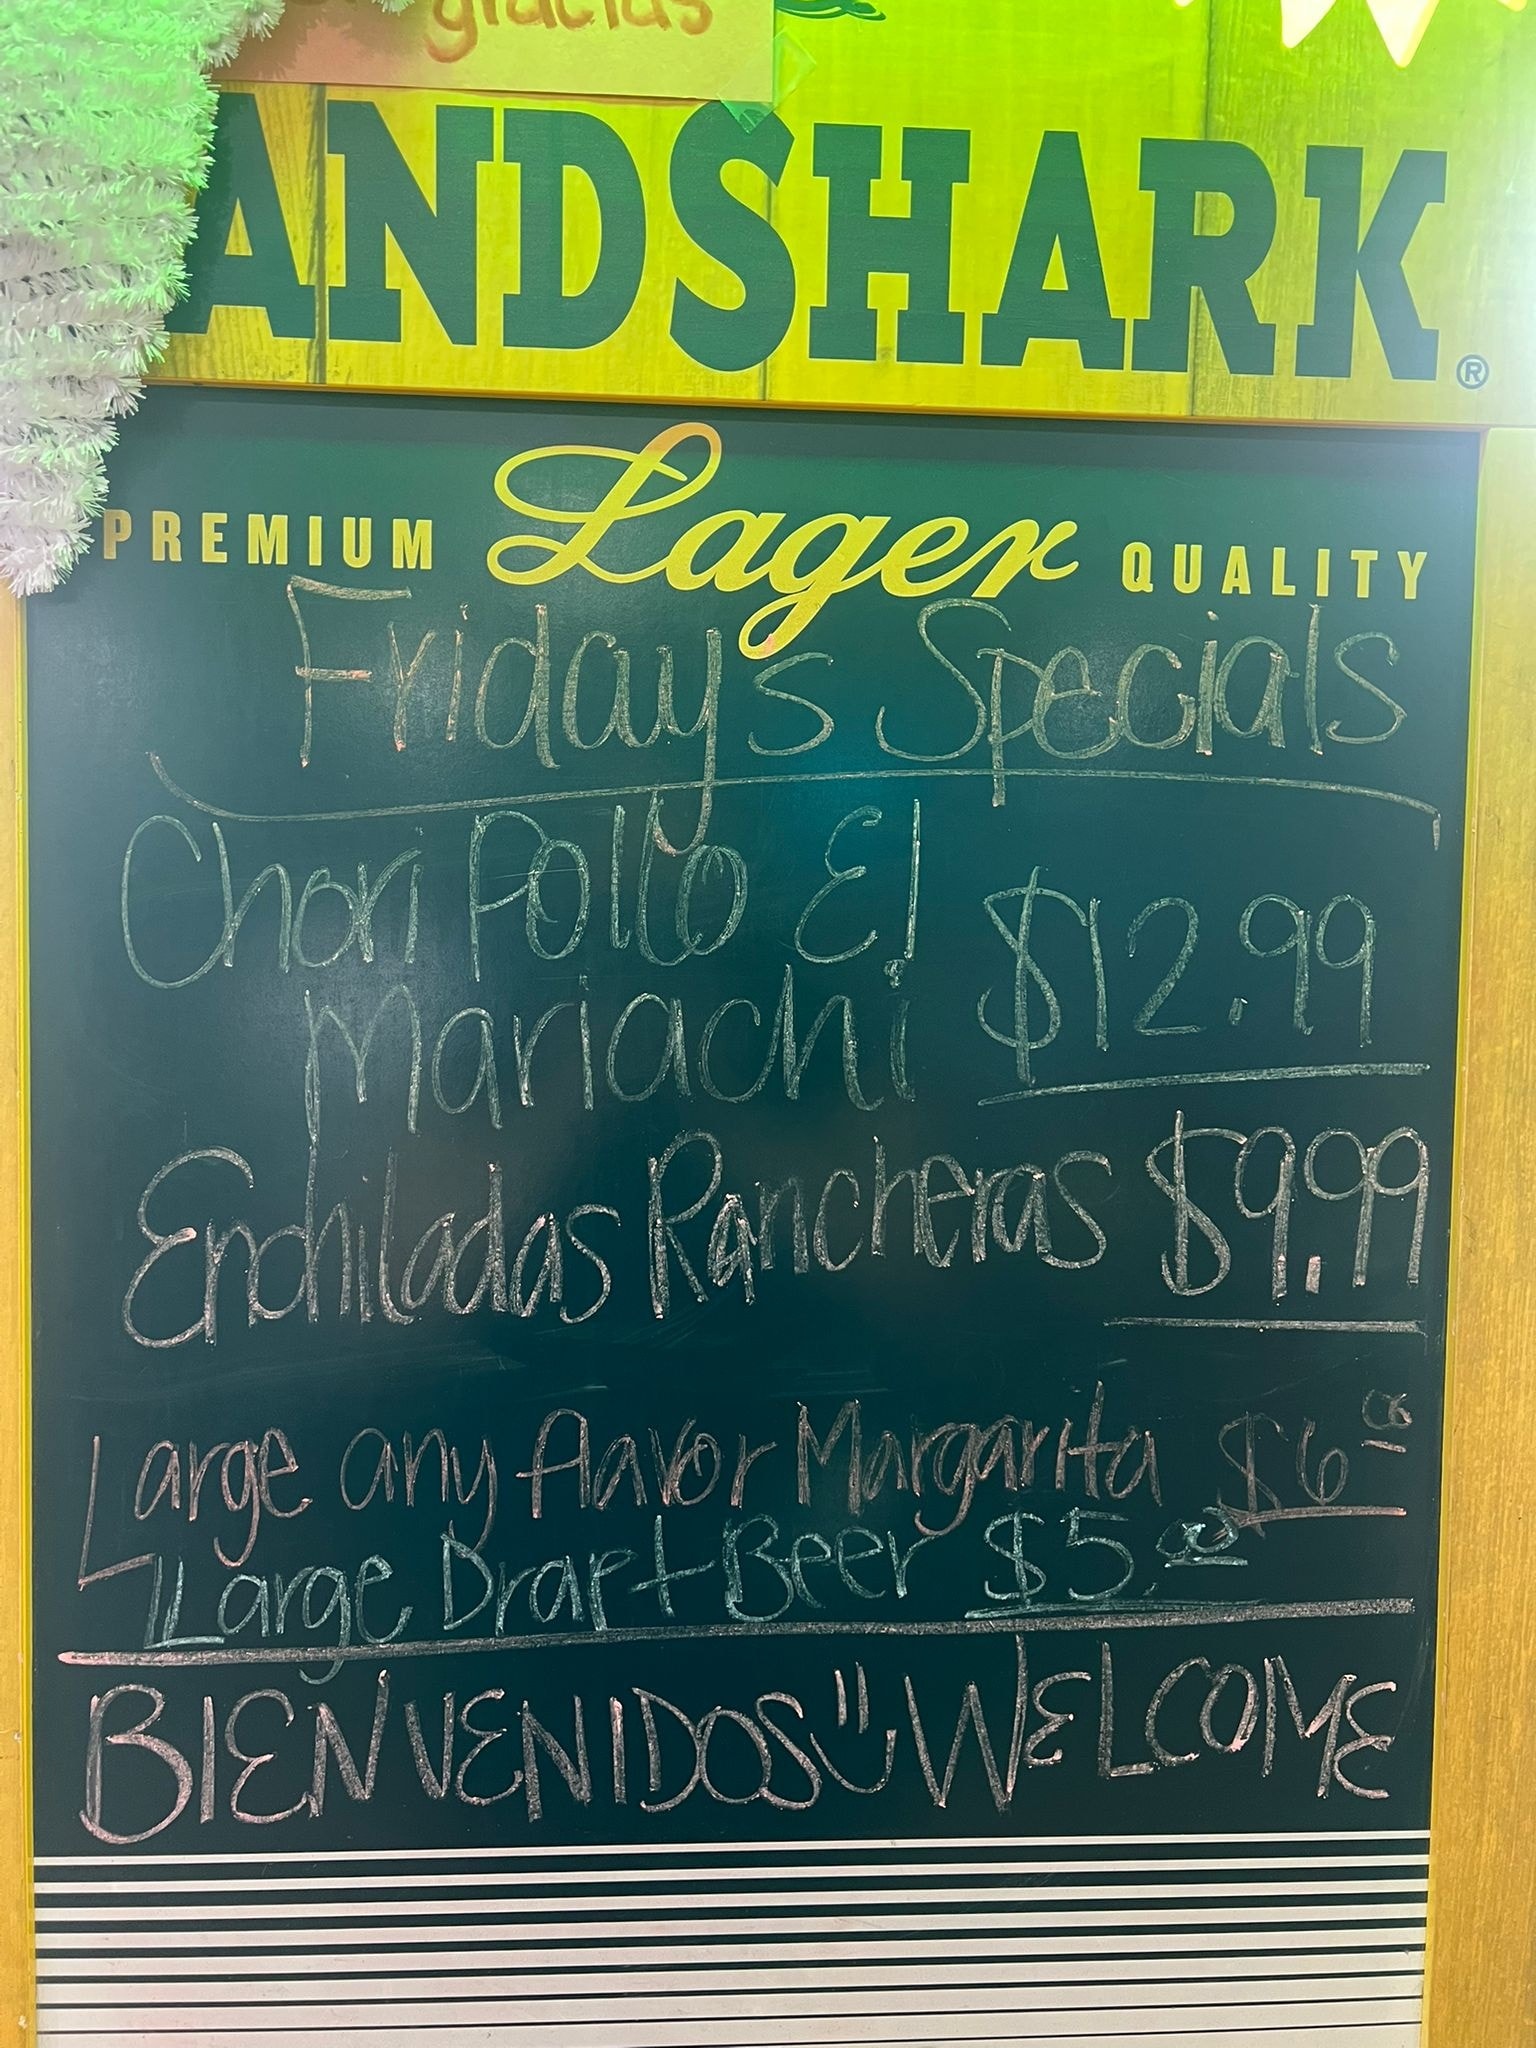 gracias
ANDSHARK®
PREMIUM Lager QUALITY
Friday's Specials
Chori Pollo El
Mariachi $12.99
Enchiladas Rancheras $9.99
Large any flavor Margarita $6
Large Draft Beer $5.00
BIENVENIDOS WELCOME